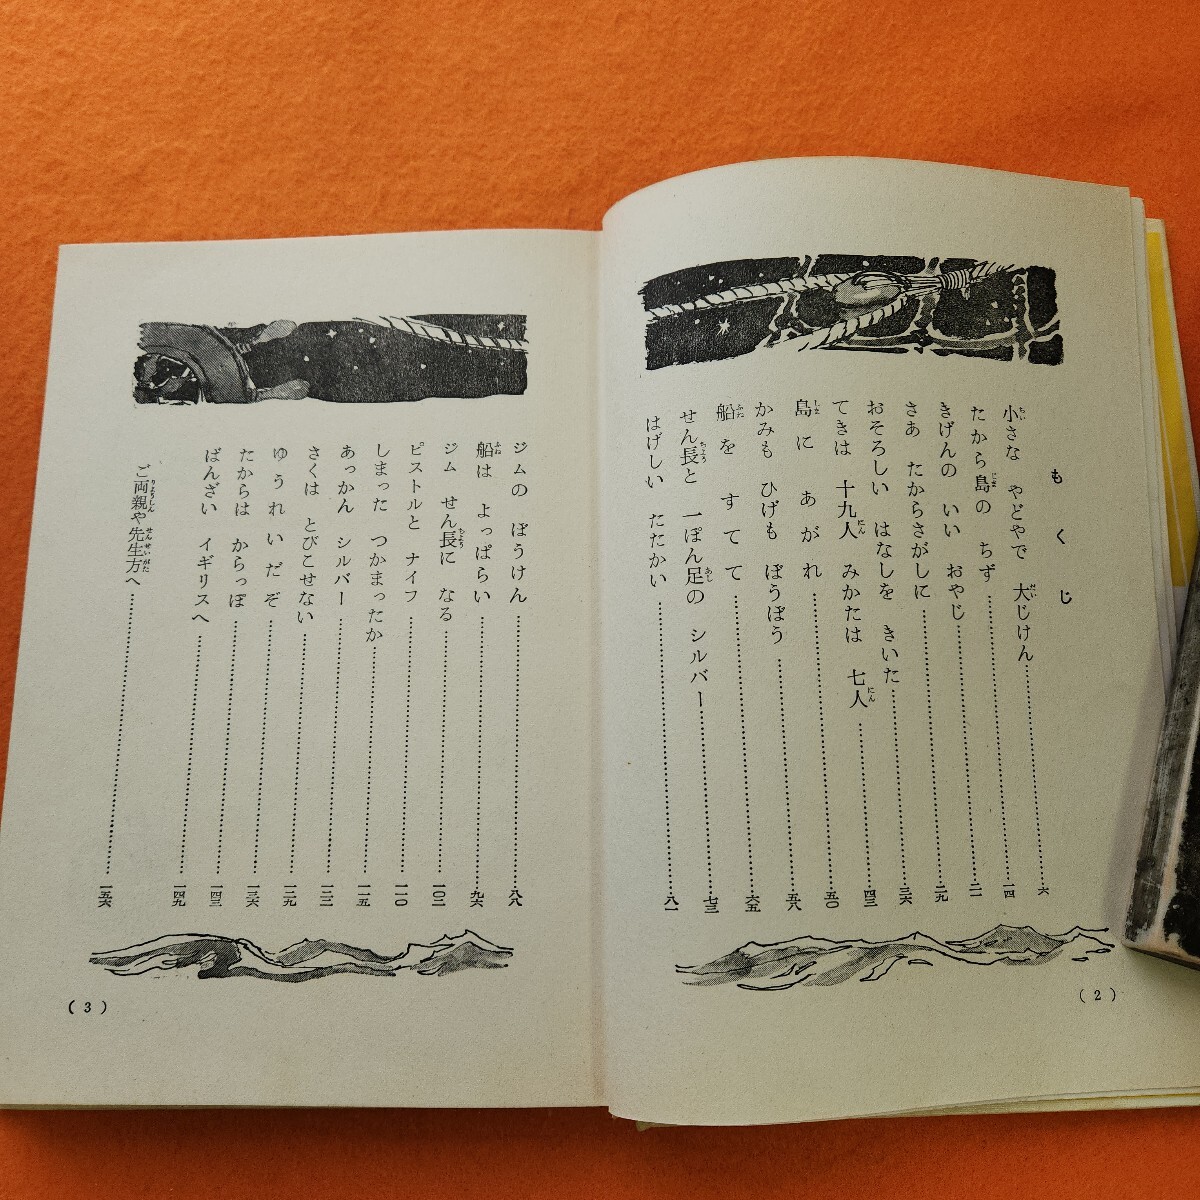 もくじ
小さな やどやで 大じけん……六
たから島の ちず……一四
きげんの いい おやじ……二一
さあ たからさがしに……二九
おそろしい はなしを きいた……三六
てきは 十九人 みかたは 七人……四三
島に あがれ……五〇
かみも ひげも ぼうぼう……五八
船を すてて……六五
せん長と 一ぽん足の シルバー……七三
はげしい たたかい……八一
(2)
ジムの ぼうけん……八八
船は よっぱらい……九六
ジム せん長に なる……一〇二
ピストルと ナイフ……一一〇
しまった つかまったか……一一五
あっかん シルバー……一二二
さくは とびこせない……一二九
ゆうれいだぞ……一三六
たからは からっぽ……一四三
ばんざい イギリスへ……一四九
ご両親や先生方へ……一五六
(3)